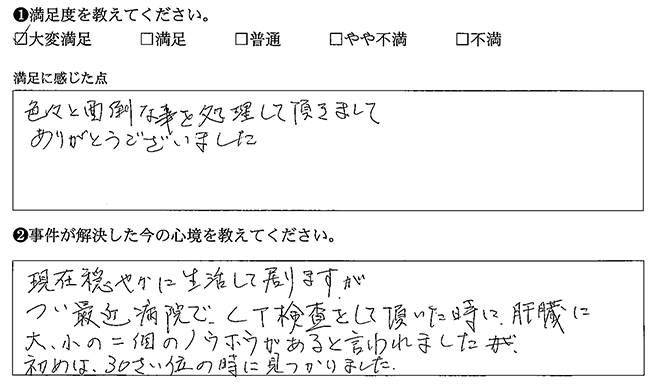 ❶満足度を教えてください。
☑大変満足 □満足 □普通 □やや不満 □不満
満足に感じた点
色々と面倒な事を処理して頂きまして
ありがとうございました
❷事件が解決した今の心境を教えてください。
現在穏やかに生活して居りますが
つい最近病院で、CT検査をして頂いた時に、肝臓に
大、小の二個のノウホウがあると言われましたが、
初めは、30さい位の時に見つかりました.